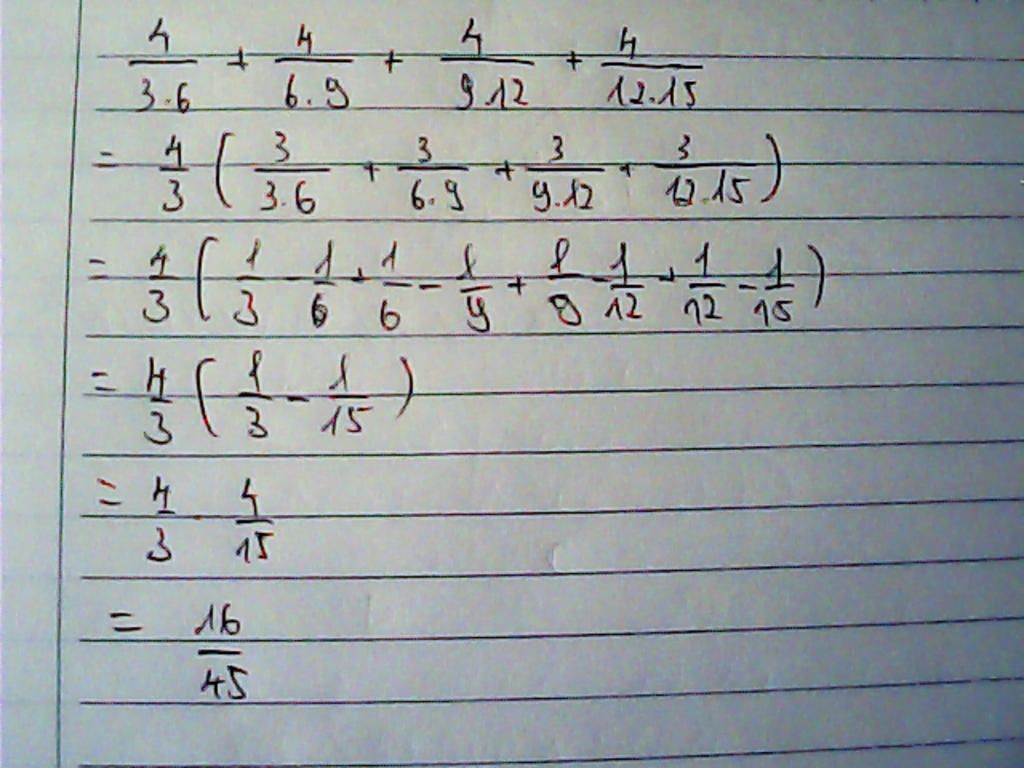 4/3.6 + 4/6.9 + 4/9.12 + 4/12.15
= 4/3 ( 3/3.6 + 3/6.9 + 3/9.12 + 3/12.15 )
= 4/3 ( 1/3 - 1/6 + 1/6 - 1/9 + 1/9 - 1/12 + 1/12 - 1/15 )
= 4/3 ( 1/3 - 1/15 )
= 4/3 . 4/15
= 16/45